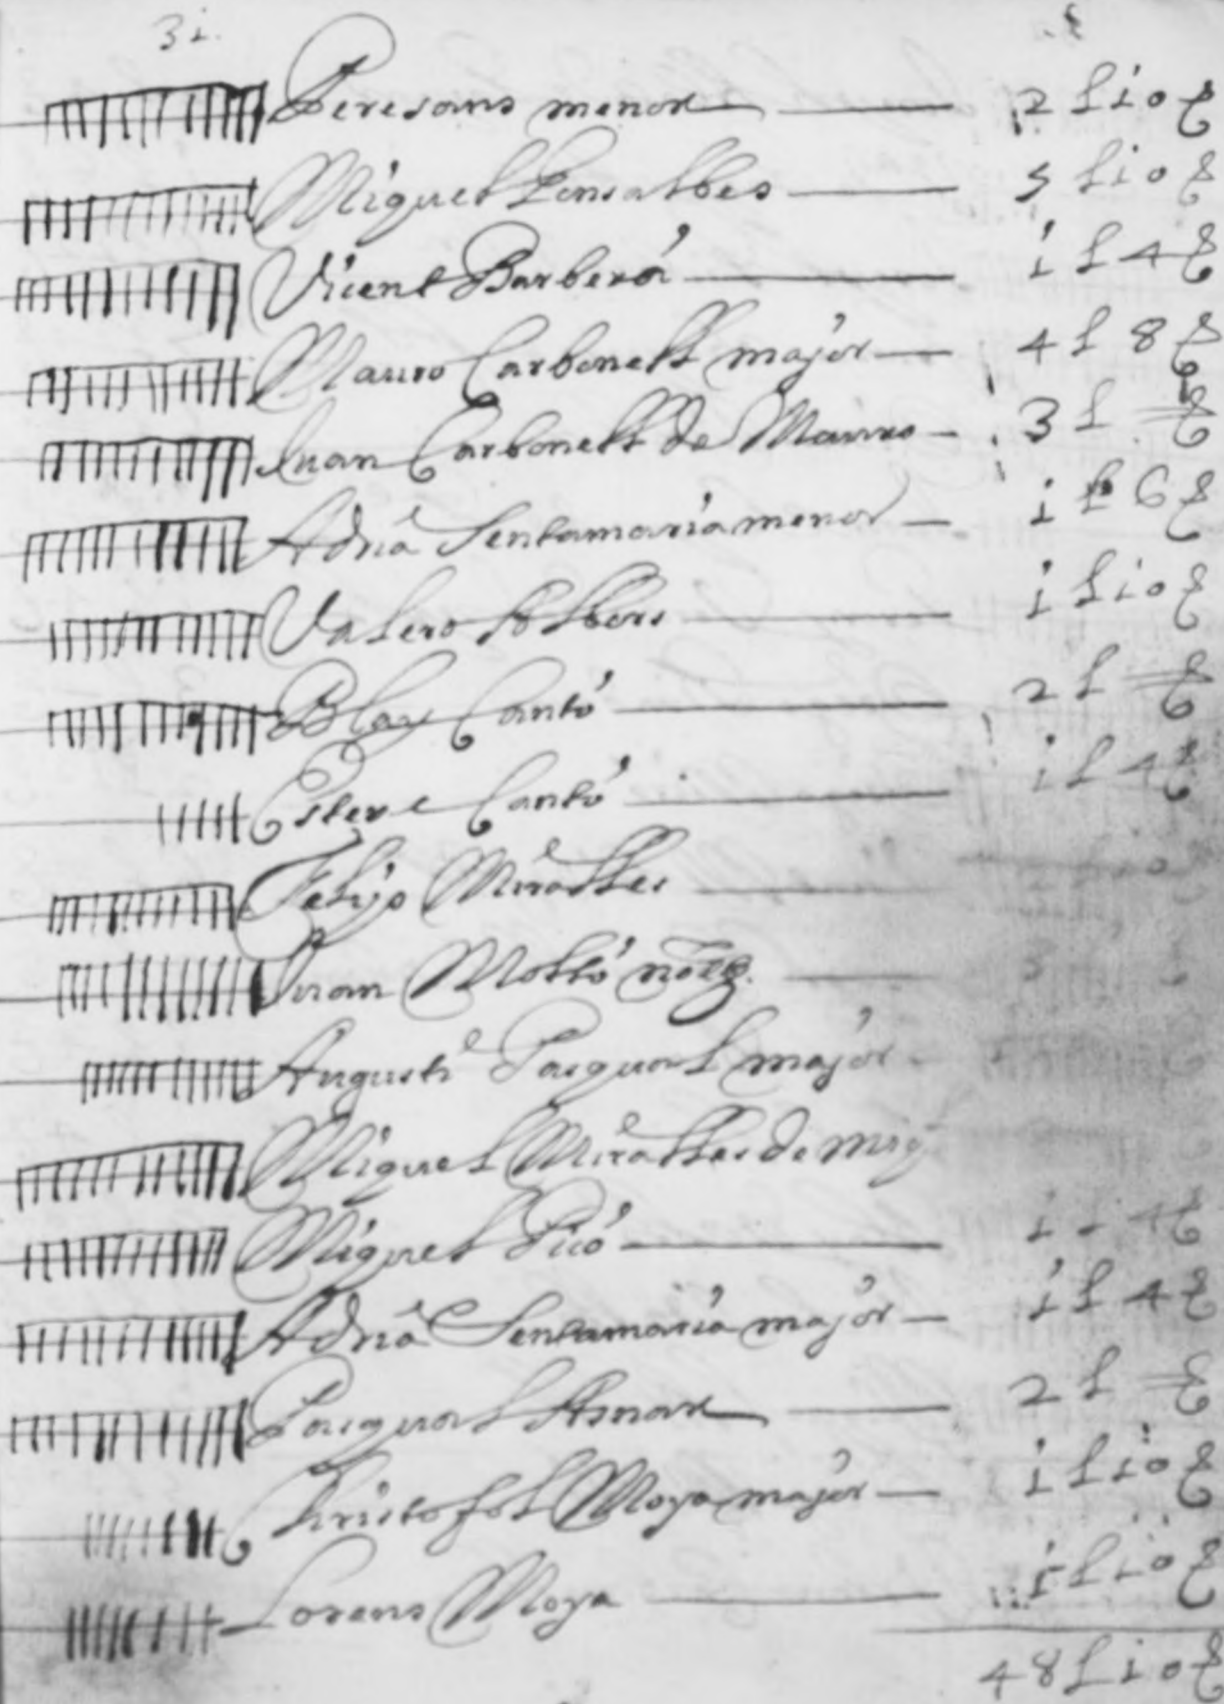 31.
Pere Sans menor 2 L 10 S
Miguel Gonsalbes 5 L 10 S
Vicent Barberá 1 L 4 S
Mauro Carbonell major 4 L 8 S
Juan Carbonell de Mauro 3 L S
Adriá Sentamaria menor 1 L 6 S
Valero Albors 1 L 10 S
Blay Cantó 2 L S
Esteve Cantó 1 L 4 S
Felip Miralles
Juan Moltó
Augustí Pasqual major
Miguel Miralles de Mig
Miguel Picó 1 L 4 S
Adriá Sentamaria major 1 L 4 S
Pasqual Asnar 2 L S
Christofol Moya major 1 L 10 S
Lorens Moya 1 L 10 S
48 L 10 S